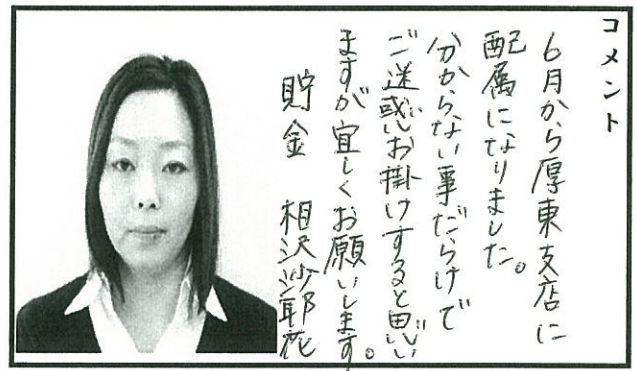 コメント
6月から厚東支店に
配属になりました。
分からない事だらけで
ご迷惑お掛けすると思い
ますが宜しくお願いします。
貯金 相沢沙耶花